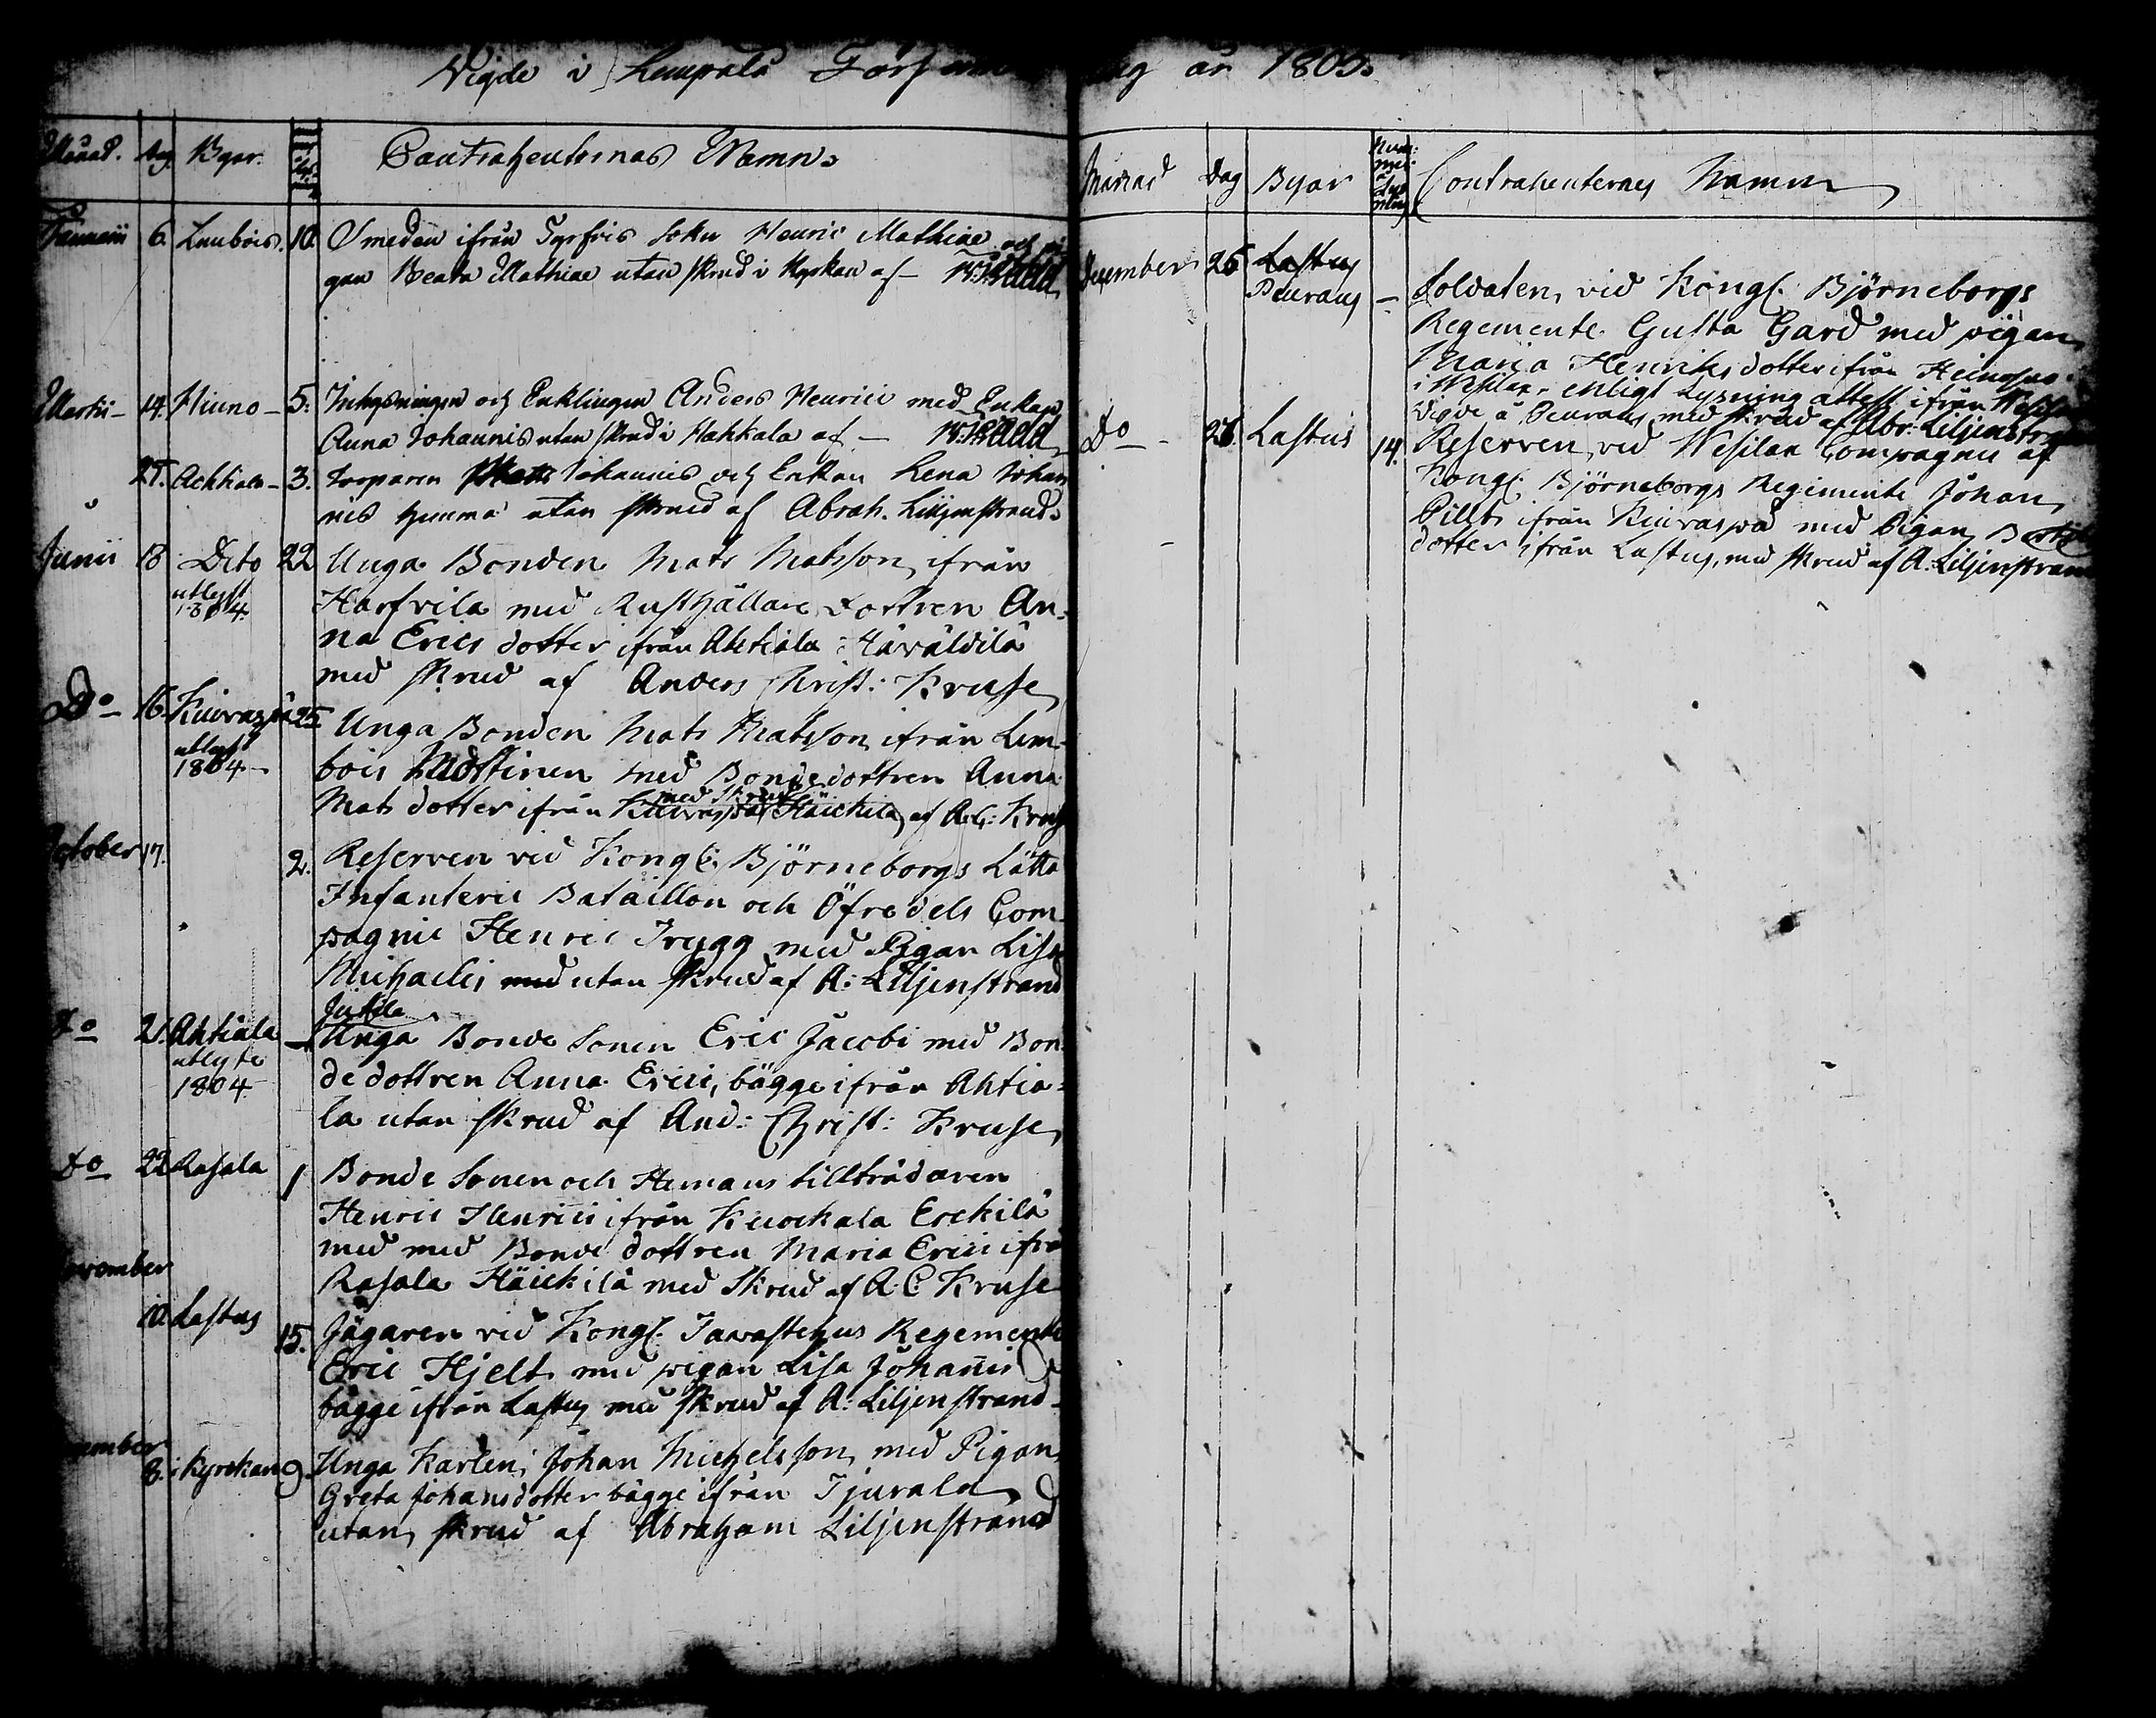 Vigde i Lempälä Församling år 1805.
Månad. Dag Byar. Contrahenternas Namn.
Januarii 6. Lembois. 10. Smeden ifrån Tyrfvis Sokn Henric Mathiae och pi
gan Beata Mathiae utan skrud i Kyrkan af
Martii 14. Hiuno 5. Inhysningen och Enklingen Anders Henrici med Enkan
Anna Johannis utan skrud i Hahkala af
27. Achtiala 3. Torparen Johannis och Enkan Lena Johan
nis hemma utan skrud af Abrah. Liljenstrand.
Junii 18 Dito 22 Unga Bonden Mats Matsson ifrån
utlyst
1804. Harfvila med Rusthållare dottren An-
na Erics dotter ifrån Ahtiala Häräldilä
med skrud af Anders Christ: Kruse
Do 16. Kuivaspä 25 Unga Bonden Mats Matsson ifrån Lem-
utlyst
1804 bois med Bonde dottren Anna
Mats dotter ifrån Kuivaspä Häickilä med skrud af A.C: Kruse
October 17. 2. Reserven vid Kongl: Björneborgs Lätta
Infanterie Bataillon och Öfredels Com-
pagnie Henric Trygg med Pigan Lisa
Michaelis med utan skrud af A: Liljenstrand
Jutila
Do 21. Ahtiala Unga Bonde Sonen Eric Jacobi med Bon-
utlyste
1804 de dottren Anna Erici, bägge ifrån Ahtia-
la utan skrud af And: Christ: Kruse
Do 22 Rasala 1 Bonde Sonen och Hemans tillträdaren
Henric Henrici ifrån Kuockala Erckilä
med med Bonde dottren Maria Erici ifrå
November Rasala Häickilä med Skrud af A. C. Kruse
10. Lastus 15. Jägaren vid Kongl. Tavastehus Regemente
Eric Hjelt med pigan Lisa Johannis
bägge ifrån Lastus med skrud af A: Liljenstrand
December
8. i Kyrckan 9. Unga Karlen Johan Michelsson med Pigan
Greta Johansdotter bägge ifrån Tjurala
utan skrud af Abraham Liljenstrand
Månad Dag Byar Num-
mer å
Lys-
ning Contrahenternes Namn
December 26 Lastus
Peuraus Soldaten vid Kongl. Björneborgs
Regemente Gusta Gard med pigan
Maria Henriksdotter ifrån
i Wesilax, enligt Lysning attest ifrån Wesilax
vigde å Peuraus med skrud af Abr: Liljenstrand
Do 26 Lastus 14. Reserven vid Wesilax Compagnie af
Kongl. Björneborgs Regimente Johan
Pillt ifrån Kuivaspä med Pigan
dotter ifrån Lastus, med skrud af A: Liljenstrand